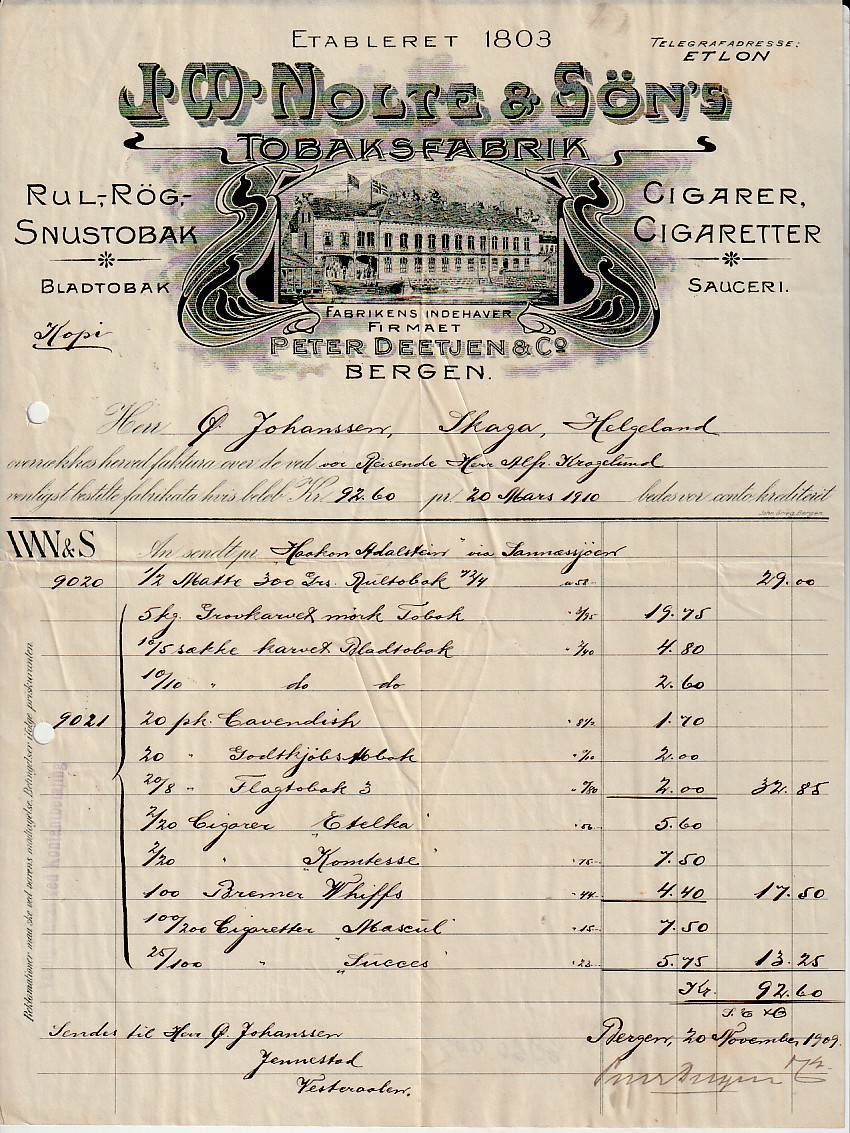 ETABLERET 1803
TELEGRAFADRESSE:
ETLON
J. W. NOLTE & SÖN'S
TOBAKSFABRIK
RUL-, RÖG-,
SNUSTOBAK
BLADTOBAK
CIGARER,
CIGARETTER
SAUCERI.
FABRIKENS INDEHAVER
FIRMAET
PETER DEETJEN & Co
BERGEN.
Kopi
Herr Ø. Johanssen, Skaga, Helgeland
overrækkes herved faktura over de ved vor Reisende Herr Alfr. Kragelund
venligst bestilte fabrikata hvis beløb Kr 92.60 pr 20 Mars 1910 bedes vor conto krediterit
John Grieg, Bergen.
JWN&S An sendt pr. "Haakon Adalstein" via Sannæssjøen
9020 1/2 Matte 300 Grs. Rultobak 72/4 " 58 29.00
5 kg. Grovkarvet mørk Tobak " 3/95 19.75
10/5 sække karvet Bladtobak 4.80
10/10 " do do 2.60
9021 20 pk. Cavendish " 8 1/2 1.70
20 " Godtkjøbstobak " /10 2.00
20/8 " Flagtobak 3 2.00 32.85
2/20 Cigarer "Etelka" " 56 5.60
2/20 " "Komtesse" " 75 7.50
100 Bremer Whiffs " 44 4.40 17.50
100/200 Cigaretter "Mascul" " 15 7.50
25/100 " "Succes" " 23 5.75 13.25
Kr. 92.60
Reklamationer maa ske ved varens modtagelse. Betingelser ifølge priskuranten.
Sendes til Herr Ø. Johanssen
Jennestad
Vesteraalen.
Bergen, 20 November 1909.